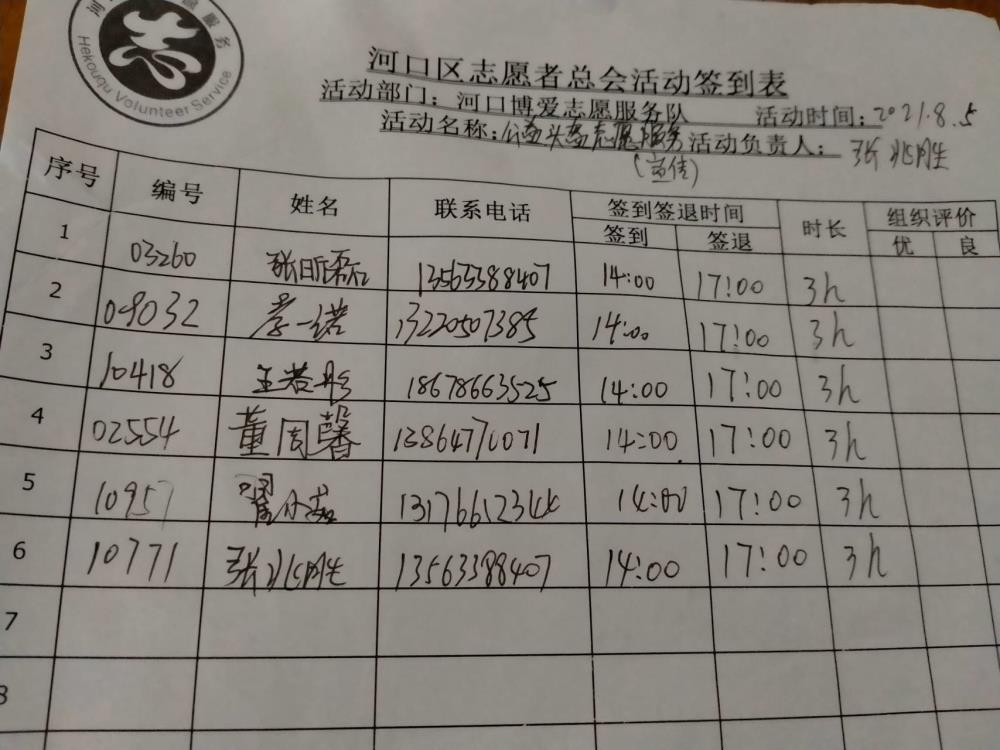 Hekouqu Volunteer Service
河口区志愿者总会活动签到表
活动部门：河口博爱志愿服务队 活动时间：2021.8.5
活动名称：公益头盔志愿服务 活动负责人：张兆胜
（宣传）
序号 编号 姓名 联系电话 签到签退时间 时长 组织评价
签到 签退 优 良
1 03260 张昕磊 13563388407 14:00 17:00 3h
2 09032 李一诺 13220507385 14:00 17:00 3h
3 10418 王若彤 18678663525 14:00 17:00 3h
4 02554 董周馨 13864771071 14:00 17:00 3h
5 10957 13176612344 14:00 17:00 3h
6 10771 张兆胜 13563388407 14:00 17:00 3h
7
8